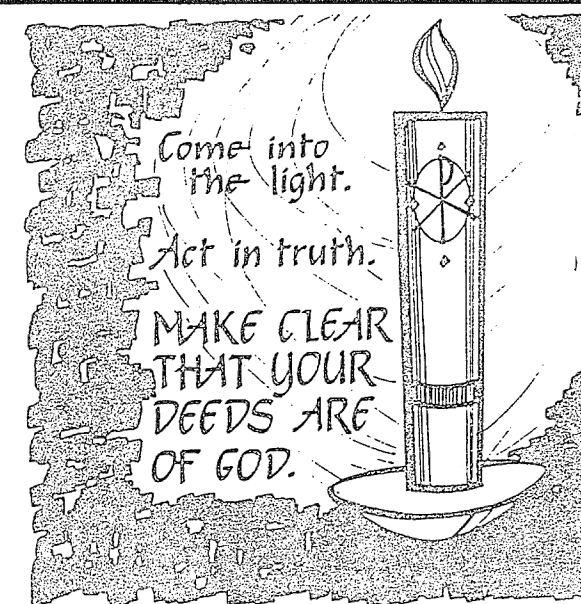 Come into
the light.
Act in truth.
MAKE CLEAR
THAT YOUR
DEEDS ARE
OF GOD.